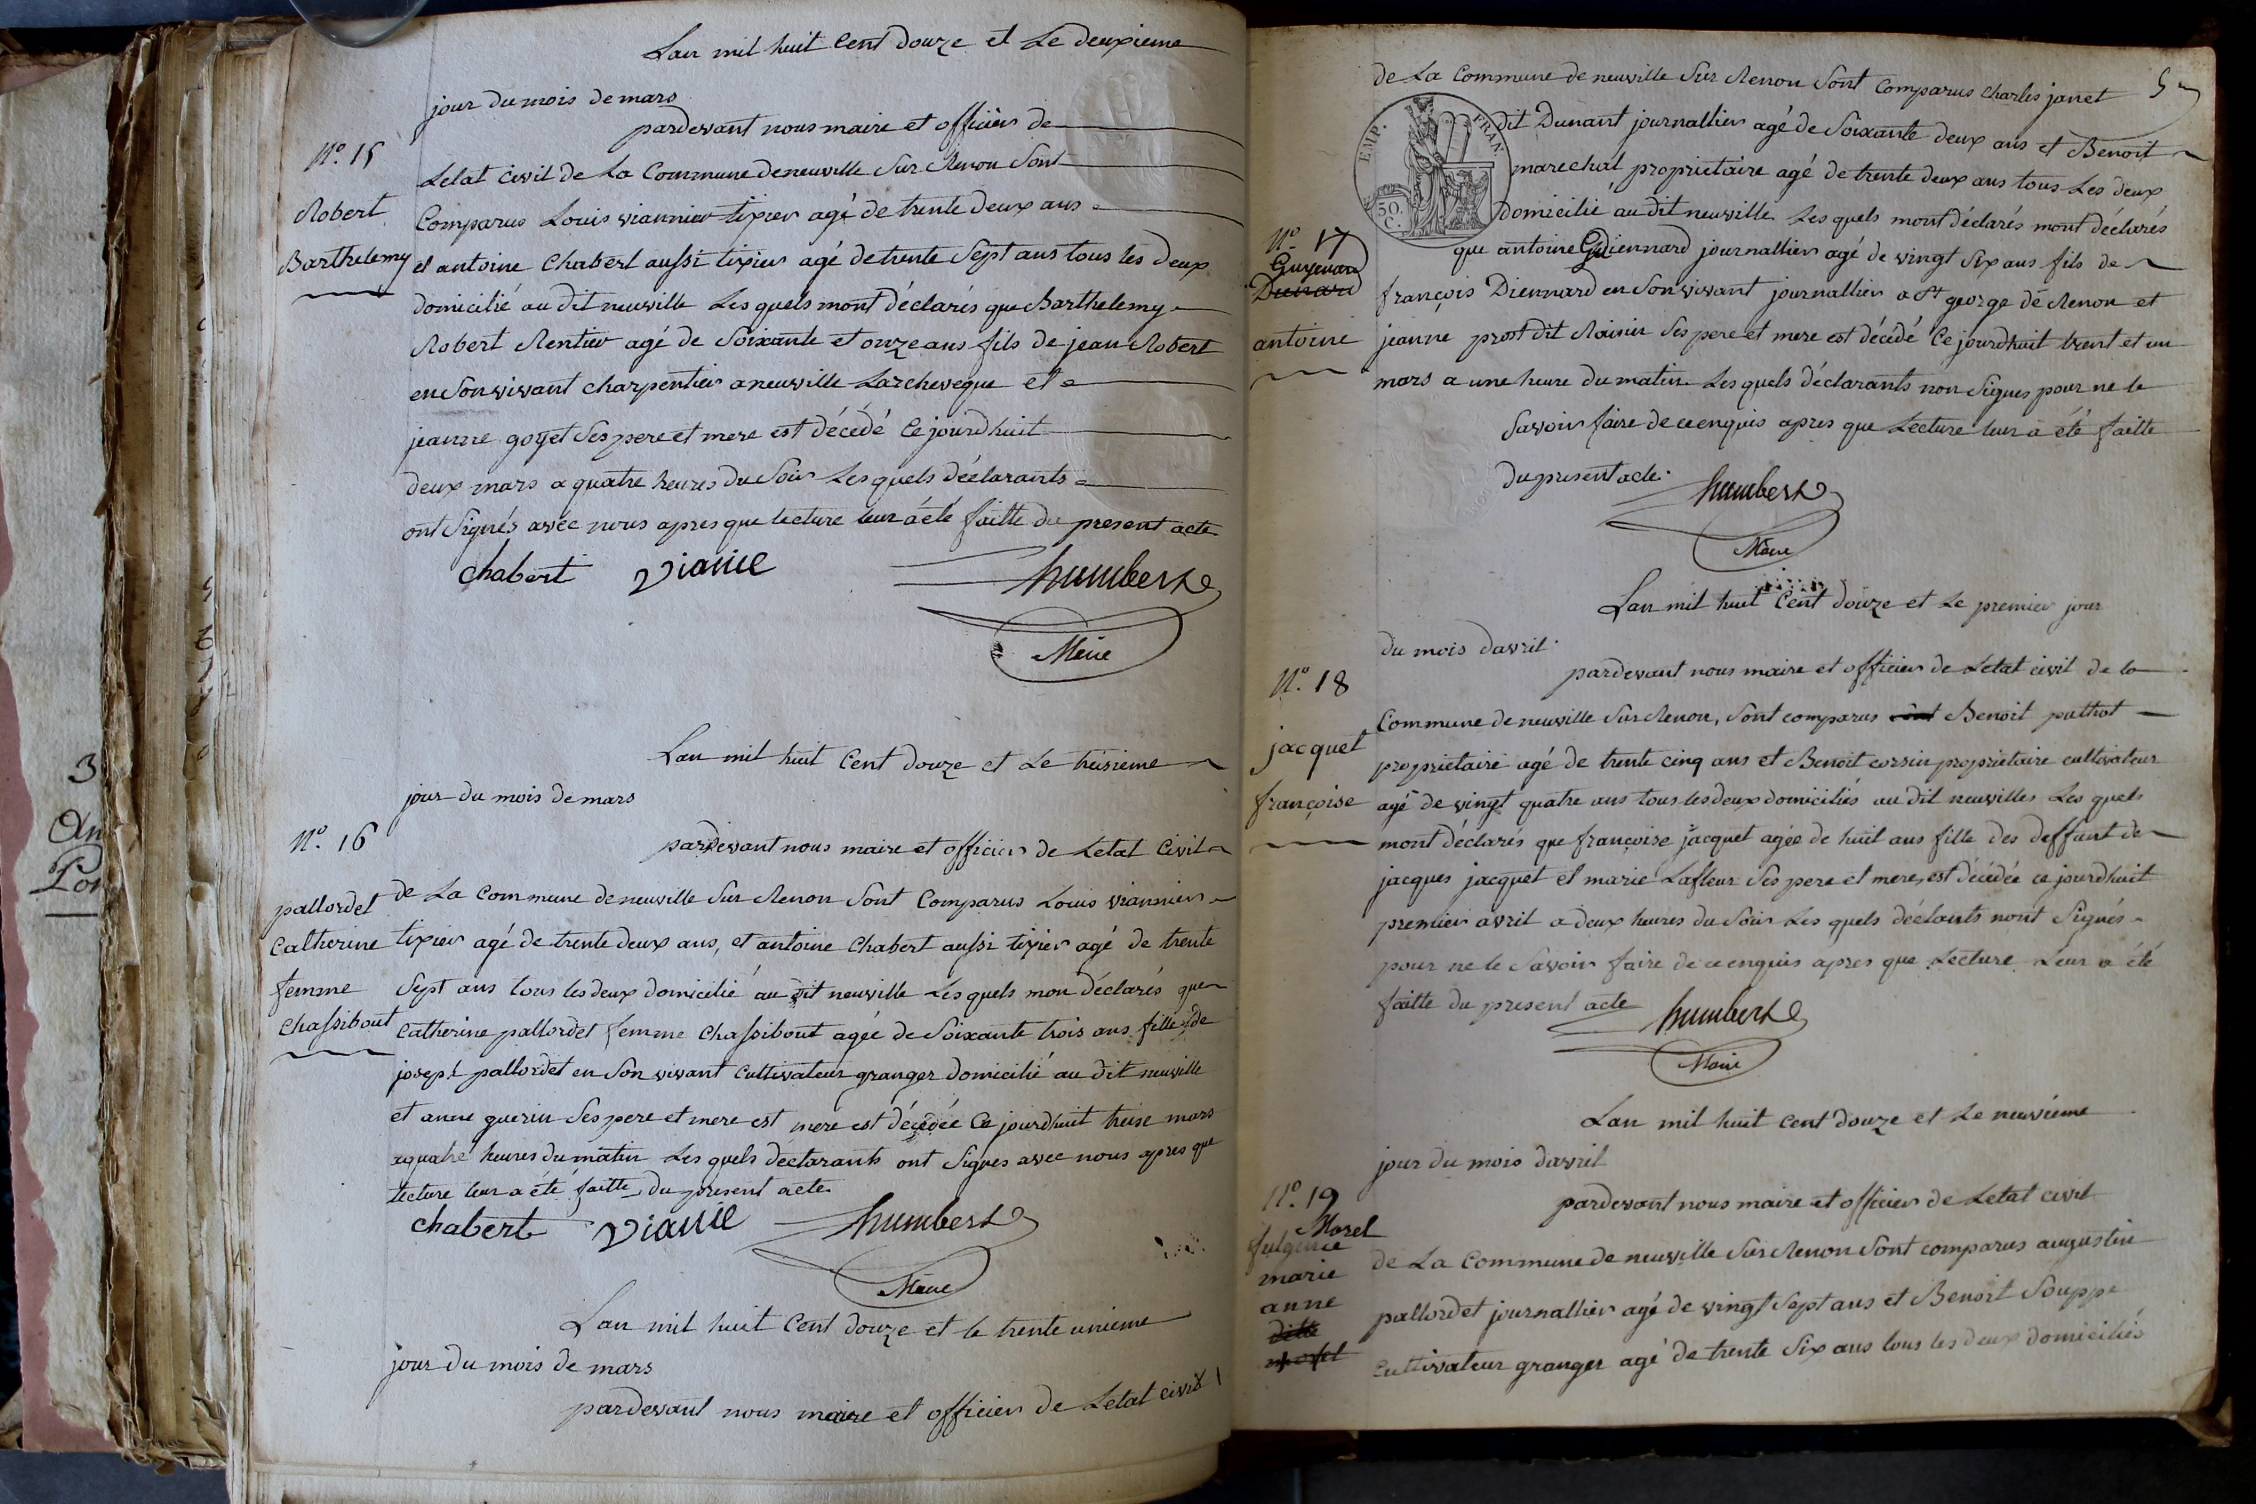 Lan mil huit Cent douze et Le deuxieme
jour du mois de mars
pardevant nous maire et officier de
N°. 15
Letat Civil de La Commune de neuville Sur Renon Sont
Robert
Comparus Louis viannier tixier agé de trente deux ans
Barthelemy
et antoine Chabert aussi tixier agé de trente Sept ans tous les deux
domicilié au dit neuville Les quels mont déclarés que Barthelemy
Robert Rentier agé de Soixante et onze ans fils de jean Robert
en Son vivant charpentier a neuville Larcheveque et
jeanne goyet Ses pere et mere est décédé Ce jourdhuit
deux mars a quatre heures du Soir Les quels déclarants
ont Signés avec nous apres que lecture leur a été faitte du present acte
Chabert vianie humbert
Maire
Lan mil huit Cent douze et Le treisieme
jour du mois de mars
N°. 16
pardevant nous maire et officier de Letat Civil
pallordet
de La Commune de neuville Sur Renon Sont Comparus Louis viannier
Catherine
tixier agé de trente deux ans, et antoine Chabert aussi tixier agé de trente
femme
Sept ans tous les deux domicilié au dit neuville Les quels mon déclarés que
Chassibout
Catherine pallordet femme Chassibout agée de Soixante trois ans fille de
joseph pallordet en Son vivant Cultivateur granger domicilié au dit neuville
et anne guerin Ses pere et mere est mere est décédée Ce jourdhuit treise mars
a quatre heures du matin Les quels déclarants ont Signés avec nous apres que
lecture leur a été faitte du present acte
Chabert vianie humbert
Maire
Lan mil huit Cent douze et le trente unieme
jour du mois de mars
pardevant nous maire et officier de Letat civil
de La Commune de neuville Sur Renon Sont Comparus Charles janet
EMP. FRAN.
50. C.
dit Dunant journallier agé de Soixante deux ans et Benoit
marechal proprietaire agé de trente deux ans tous Les deux
domicilié au dit neuville Les quels mont déclarés mont déclarés
N°. 17
Guyenard
Dienard
que antoine Guiennard journallier agé de vingt Six ans fils de
françois Diennard en Son vivant journallier a St george de Renon et
antoine
jeanne prost dit Roisin Ses pere et mere est décédé Ce jourdhuit trent et un
mars a une heure du matin Les quels déclarants non Signes pour ne le
Savoir faire de ce enquis apres que Lecture leur a été faitte
du present acte
humbert
Maire
Lan mil huit Cent douze et Le premier jour
du mois davril
N°. 18
pardevant nous maire et officier de Letat civil de la
Commune de neuville Sur Renon, Sont comparus sont Benoit puthot
jacquet
proprietaire agé de trente cinq ans et Benoit corsin proprietaire cultivateur
françoise
agé de vingt quatre ans tous les deux domiciliés au dit neuvilles Les quels
mont déclarés que françoise jacquet agée de huit ans fille des deffunt de
jacques jacquet et marie Lafleur Ses pere et mere, est décédée ce jourdhuit
premier avril a deux heures du Soir Les quels déclants nont Signés
pour ne le Savoir faire de ce enquis apres que Lecture Leur a été
faitte du present acte
humbert
Maire
Lan mil huit cent douze et Le neuvieme
jour du mois davril
N°. 19
pardevant nous maire et officier de Letat civil
Morel
fulgence
de La Commune de neuville Sur Renon Sont comparus augustin
marie
anne
pallordet journallier agé de vingt Sept ans et Benoit Souppe
ditte
morel
Cultivateur granger agé de trente Six ans tous les deux domiciliés